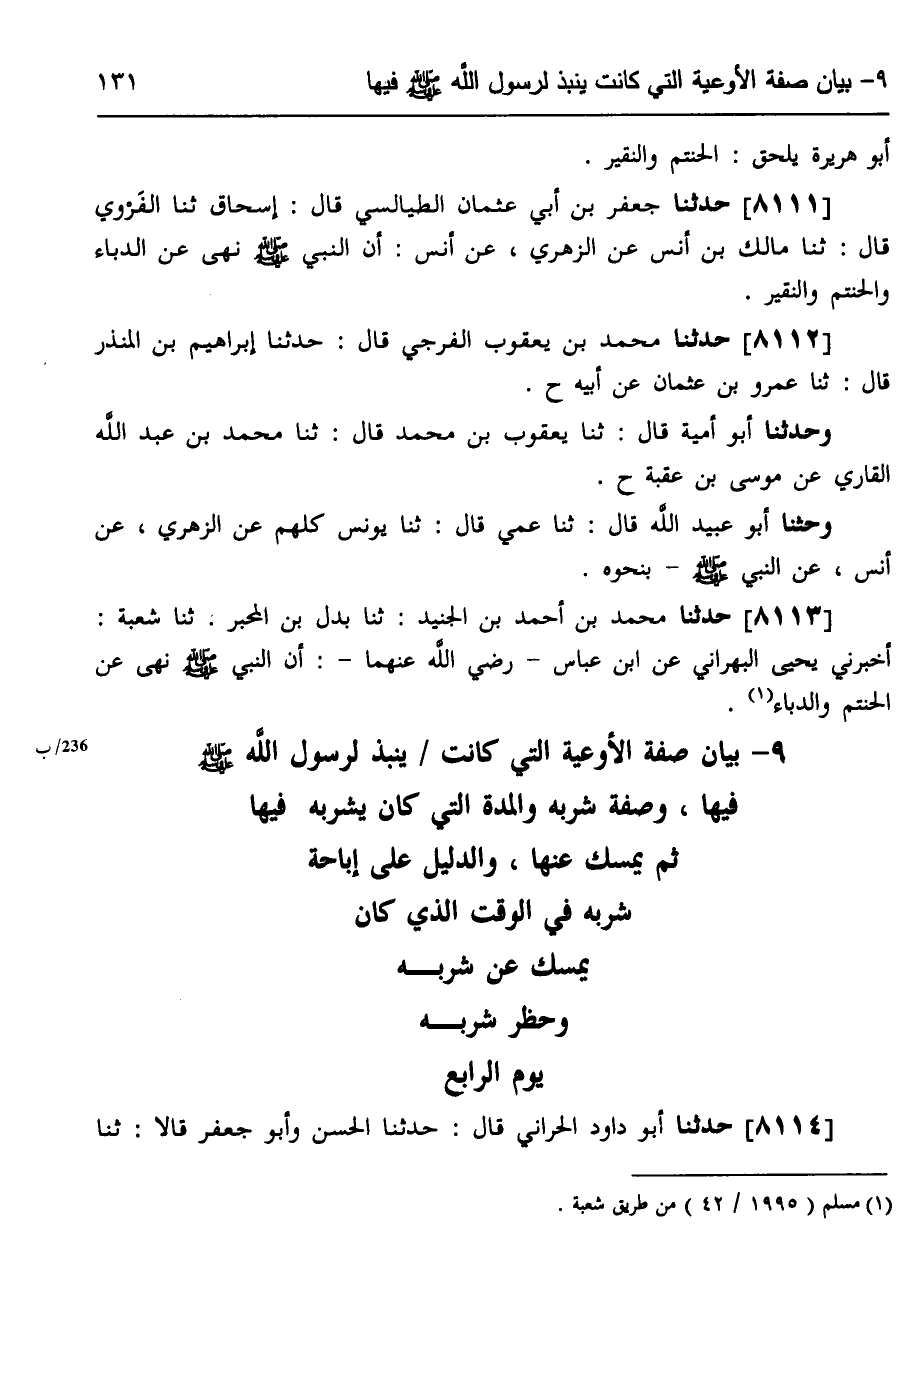 ٩- بيان صفة الأوعية التي كانت ينبذ لرسول اللَّه ﷺ فيها ١٣١
أبو هريرة يلحق : الحنتم والنقير .
[٨١١١] حدثنا جعفر بن أبي عثمان الطيالسي قال : إسحاق ثنا الفَرْوي
قال : ثنا مالك بن أنس عن الزهري ، عن أنس : أن النبي ﷺ نهى عن الدباء
والحنتم والنقير .
[٨١١٢] حدثنا محمد بن يعقوب الفرجي قال : حدثنا إبراهيم بن المنذر
قال : ثنا عمرو بن عثمان عن أبيه ح .
وحدثنا أبو أمية قال : ثنا يعقوب بن محمد قال : ثنا محمد بن عبد اللَّه
القاري عن موسى بن عقبة ح .
وحثنا أبو عبيد اللَّه قال : ثنا عمي قال : ثنا يونس كلهم عن الزهري ، عن
أنس ، عن النبي ﷺ - بنحوه .
[٨١١٣] حدثنا محمد بن أحمد بن الجنيد : ثنا بدل بن المحبر . ثنا شعبة :
أخبرني يحيى البهراني عن ابن عباس - رضي اللَّه عنهما - : أن النبي ﷺ نهى عن
الحنتم والدباء(١) .
٩- بيان صفة الأوعية التي كانت / ينبذ لرسول اللَّه ﷺ 236/ب
فيها ، وصفة شربه والمدة التي كان يشربه فيها
ثم يمسك عنها ، والدليل على إباحة
شربه في الوقت الذي كان
يمسك عن شربـــه
وحظر شربـــه
يوم الرابع
[٨١١٤] حدثنا أبو داود الحراني قال : حدثنا الحسن وأبو جعفر قالا : ثنا
(١) مسلم ( ١٩٩٥ / ٤٢ ) من طريق شعبة .